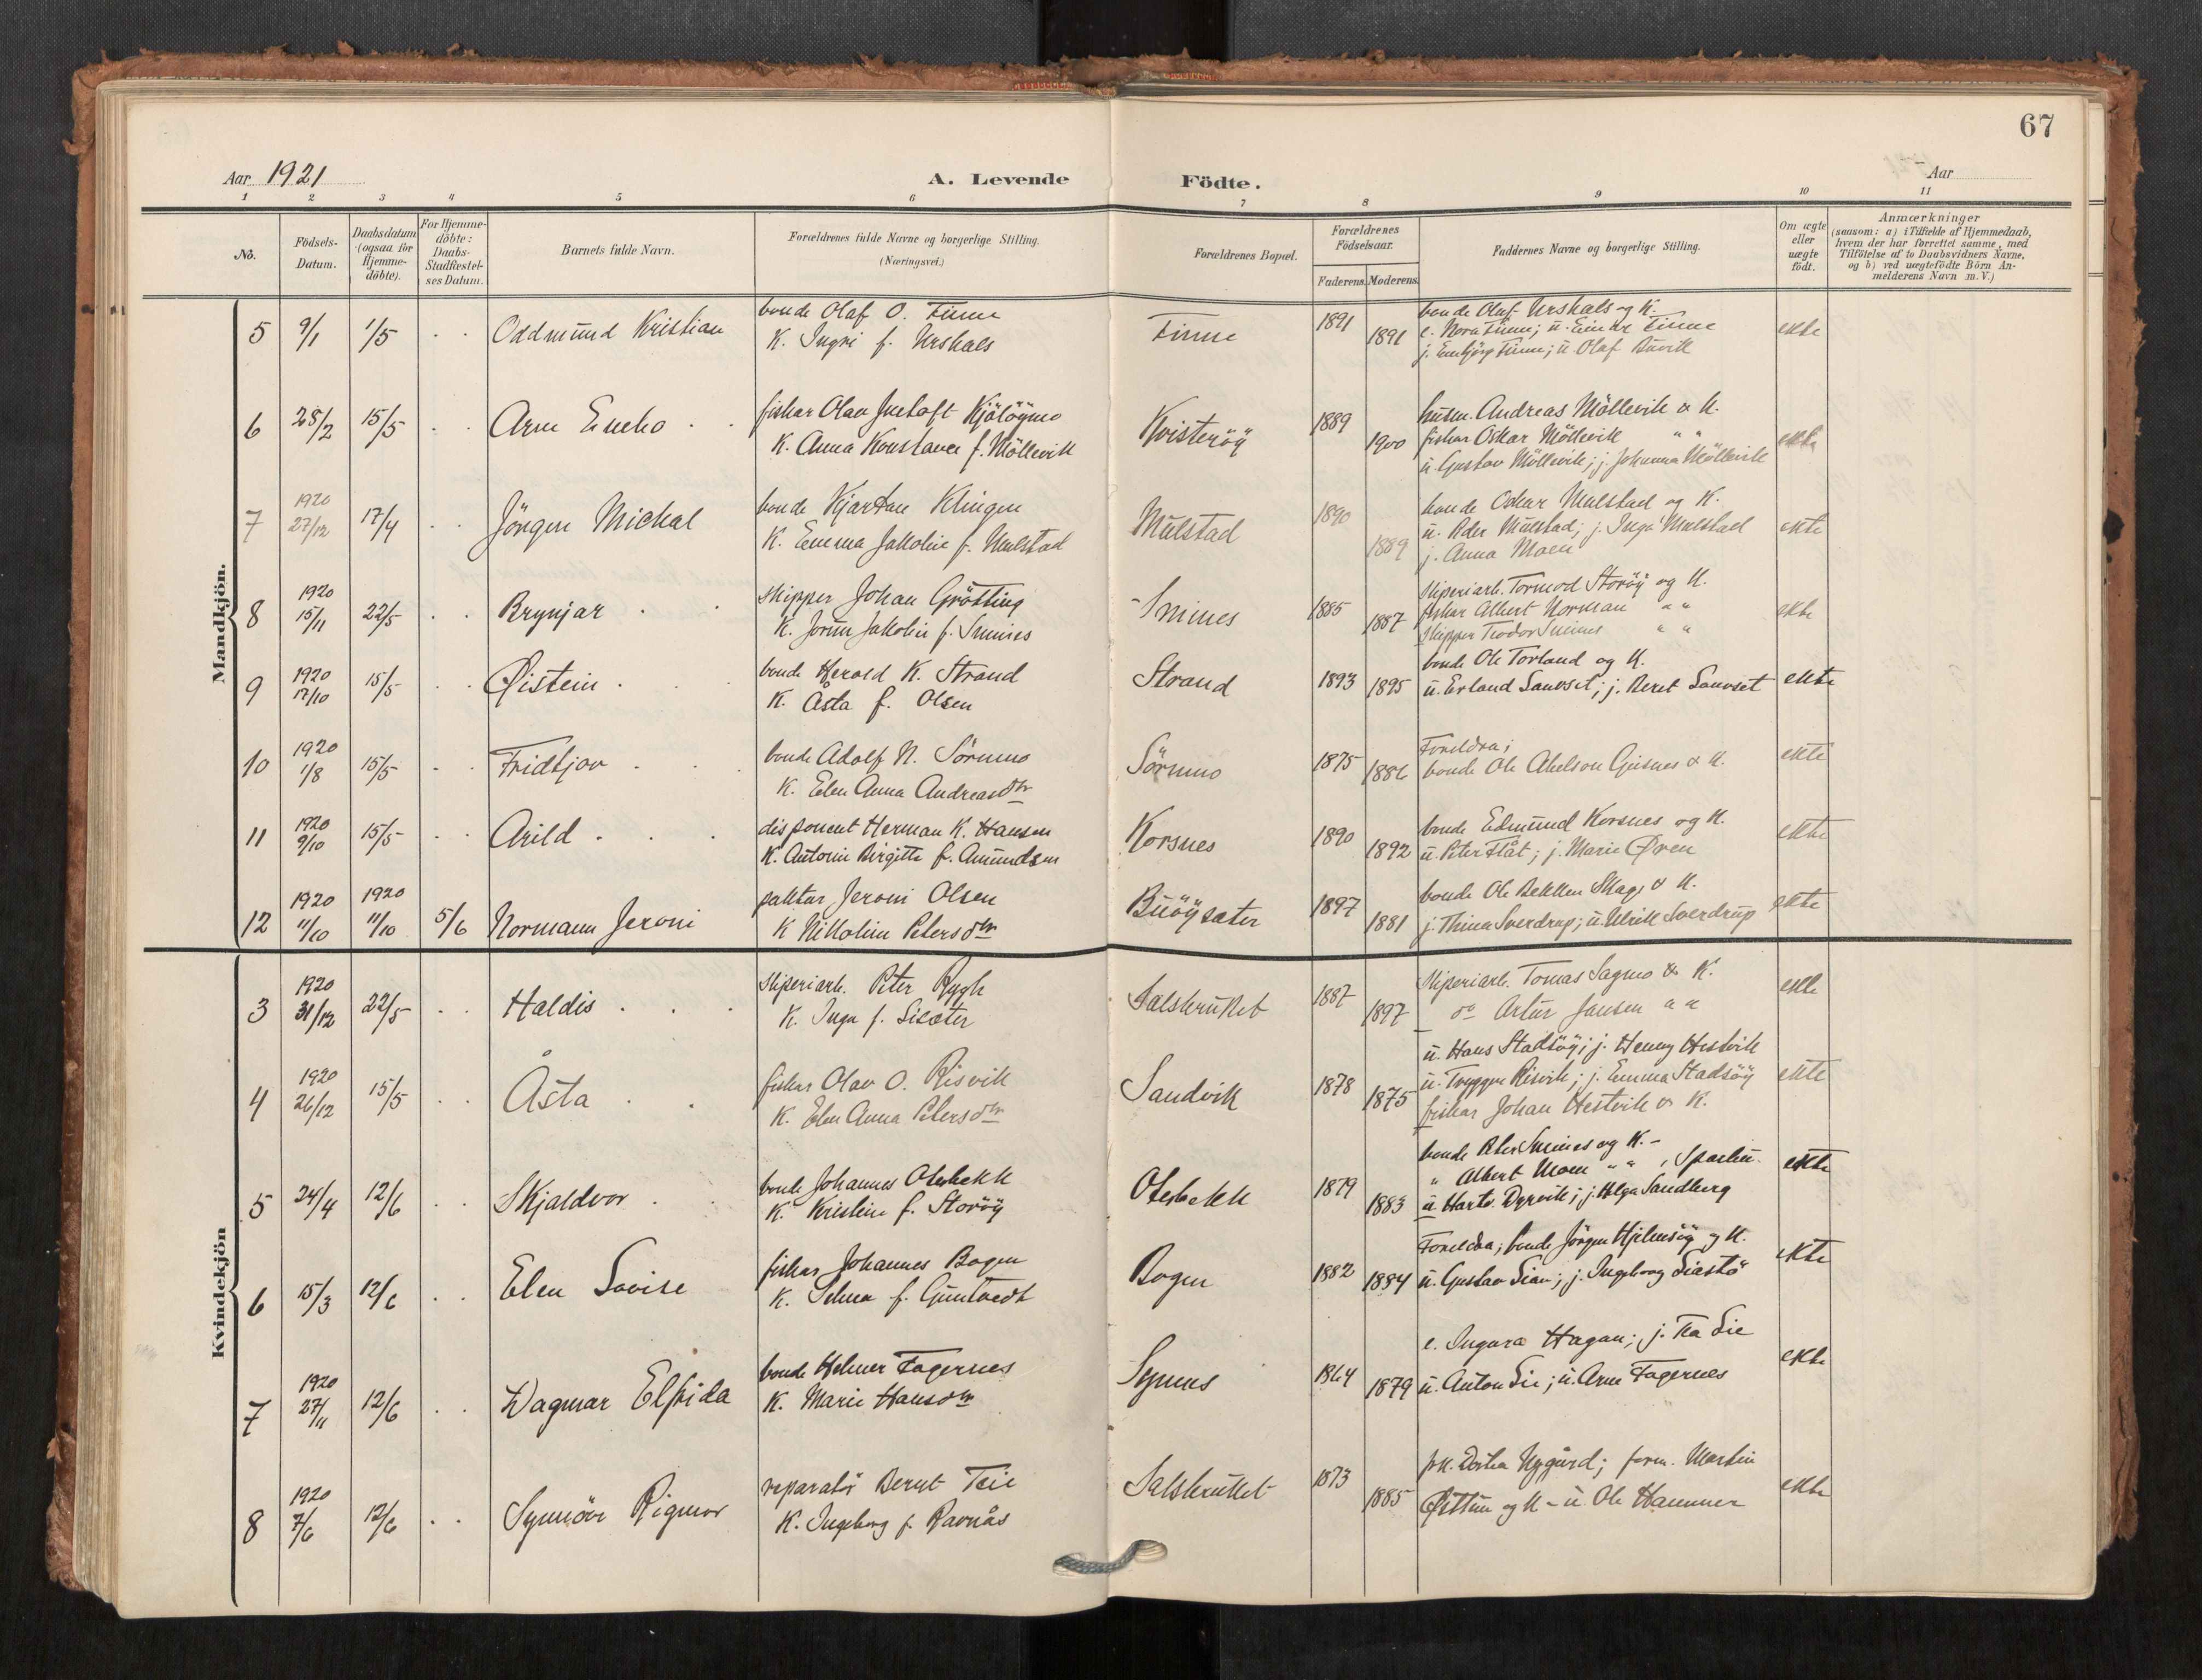 67
Aar 1921
A. Levende Födte.
Aar
1 2 3 4 5 6 7 8 9 10 11
No.
Födsels-
Datum.
Daabsdatum
(ogsaa for
Hjemme-
döbte).
For Hjemme-
döbte:
Daabs-
Stadfæstel-
ses Datum.
Barnets fulde Navn.
Forældrenes fulde Navne og borgerlige Stilling.
(Næringsvei.)
Forældrenes Bopæl.
Forældrenes
Födselsaar.
Faderens. Moderens.
Faddernes Navne og borgerlige Stilling.
Om ægte
eller
uægte
födt.
Anmærkninger
(saasom: a) i Tilfælde af Hjemmedaab,
hvem der har forrettet samme, med
Tilföielse af to Daabsvidners Navne,
og b) ved uægtefödte Börn An-
melderens Navn m. V.)
Mandkjön.
5 9/1 1/5 Oddmund Kristian
bonde Olaf O. Finne
K. Ingri f. Urskals
Finne 1891 1891
bonde Oluf Urskals og K.
e. Nora Finne; u. Einar Finne
j. Enbjörg Finne; u. Olaf Buvik
ekte
6 28/2 15/5 Arne
fiskar Olav Kjölöymo
K. Anna Konstance f. Möllevik
Kvisteröy 1889 1900
husm. Andreas Möllevik & K.
fiskar Oskar Möllevik " "
u. Gustav Möllevik; j. Johanna Möllevik
ekte
7 1920 27/12 17/4 Jörgen Michal
bonde Kjartan Klingen
K. Emma Jakobine f. Mulstad
Mulstad 1890 1889
bonde Oskar Mulstad og K.
u. Peder Mulstad; j. Inga Mulstad
j. Anna Moen
ekte
8 1920 15/11 22/5 Brynjar
skipper Johan Grötting
K. Jorun Jakobine f. Snines
Snines 1885 1887
sliperiarb. Tormod Storöy og K.
fiskar Albert Norman " "
skipper Teodor Snines " "
ekte
9 1920 17/10 15/5 Øistein
bonde Herold K. Strand
K. Åsta f. Olsen
Strand 1893 1895
bonde Ole Torland og K.
u. Erland Sanvset; j. Beret Sanvset
ekte
10 1920 1/8 15/5 Fridtjov
bonde Adolf N. Sörumo
K. Elen Anna Andreasdtr
Sörumo 1875 1886
Foreldra;
bonde Ole Abelson Gjesnes & K.
ekte
11 1920 9/10 15/5 Arild
disponent Herman K. Hansen
K. Antonie Birgitte f. Amundsen
Korsnes 1890 1892
bonde Edmund Korsnes og K.
u. Peter Flåt; j. Marie Øren
ekte
12 1920 11/10 1920 11/10 5/6 Normann Jeroni
paktar Jeroni Olsen
K Nikoline Petersdtr
Buöysæter 1897 1881
bonde Ole Bekken Skage & K.
j. Thina Sverdrup; u. Ulrik Sverdrup
ekte
Kvindekjön
3 1920 31/12 22/5 Haldis
sliperiarb. Peter Rygh
K. Inga f. Lisæter
Salsbruket 1887 1897
sliperiarb. Tomas Sagmo & K.
do Artur Jansen " "
ekte
4 1920 26/12 15/5 Åsta
fiskar Olav O. Risvik
K. Elen Anna Petersdtr
Sandvik 1878 1875
u. Hans Stadsöy; j. Henny Hestvik
u. Tryggve Risvik; j. Emma Stadsöy
fiskar Johan Hestvik & K.
ekte
5 24/4 12/6 Skjaldvor
bonde Johannes Oterbekk
K. Kristine f. Storöy
Oterbekk 1879 1883
bonde Peter Snines og K. -
" Albert Moen " "
u. Hartv. Dyrvik; j. Helga Sandberg
ekte
6 15/3 12/6 Elen Lovise
fiskar Johannes Bogen
K. Selma f. Guntvedt
Bogen 1882 1884
Foreldra; bonde Jörgen Hjelmsöy og K.
u. Gustav Lian; j. Ingeborg Liastö
ekte
7 1920 27/11 12/6 Dagmar Elfrida
bonde Helmer Fagernes
K. Marie Hansdtr
1864 1879
e. Ingara Hagan; j. Tea Lie
u. Anton Lie; u. Arne Fagernes
ekte
8 1920 7/6 12/6 Synnöve Rigmor
reparatör Bernt Teie
K. Ingeborg f. Ravnås
Salsbruket 1873 1885
frk. Dortea Nygård; form. Martin
Østtun og K - u. Ole Hammer
ekte